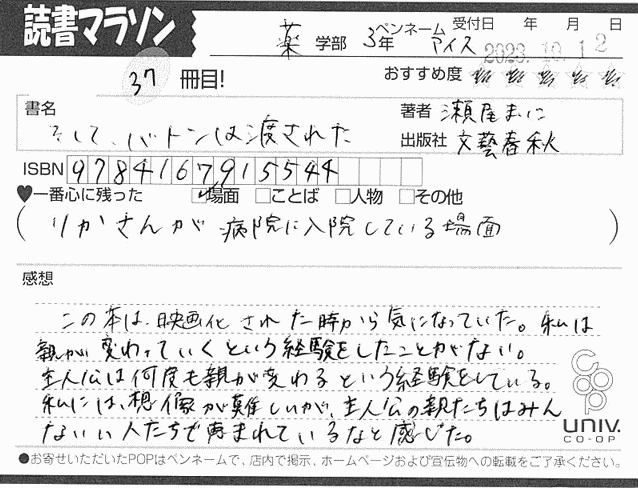 読書マラソン
薬 学部 3年 ペンネーム アイス 受付日 年 月 日
2023.10.12
37 冊目! おすすめ度
書名 そして、バトンは渡された
著者 瀬尾まいこ
出版社 文藝春秋
ISBN 9784167915544
♥一番心に残った ☑場面 □ことば □人物 □その他
(りかさんが病院に入院している場面)
感想
この本は、映画化された時から気になっていた。私は
親が変わっていくという経験をしたことがない。
主人公は何度も親が変わるという経験をしている。
私には、想像が難しいが、主人公の親たちはみん
ないい人たちで恵まれているなと感じた。
coop
UNIV.
CO-OP
●お寄せいただいたPOPはペンネームで、店内で掲示、ホームページおよび宣伝物への転載をご了承ください。